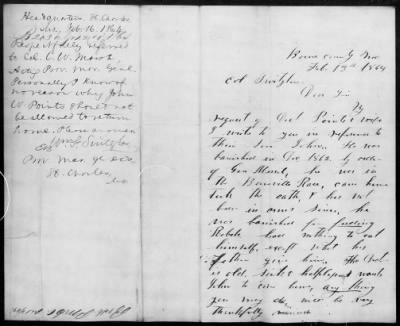 Headquarters St. Charles
Mo, Feb. 16. 1864
Respectfully referred
to Col. C. W. Marsh
Actg Prov. Mar. Genl.
Personally I know of
no reason why John
W. Points should not
be allowed to return
home.
Prov. Mar.
St. Charles,
Mo
Boone county Mo
Feb. 13th 1864
Col
Dear Sir
By
request of Doct Points's wife
I write to you in reference to
their son John. He was
banished in Dec 1862. by order
of Gen he was in
the Boonville Race, came home
took the oath, & has not
been in arms since, he
was banished for feeding
Rebels had nothing to eat
himself, except what his
Father gave him. The Doct
is old, sick & helpless & wants
John to come home, any thing
you may do will be very
thankfully received